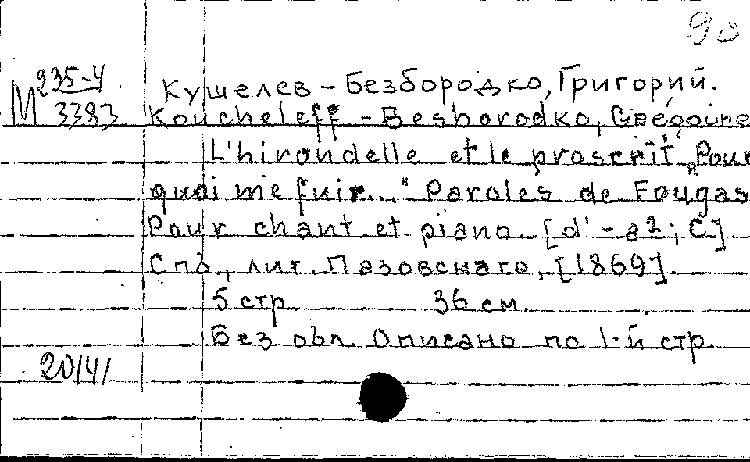 90
М 235-4
3383
Кушелев-Безбородко, Григорий.
Koucheleff-Besborodko, Grégoire
L'hirondelle et le proscrit "Pour
quoi me fuir..." Paroles de Fougas
Pour chant et piano. [d'-a2; C.]
Спб., лит. Пазовскаго, [1869].
5 стр. 36 см.
Без обл. Описано по 1-й стр.
20/4/